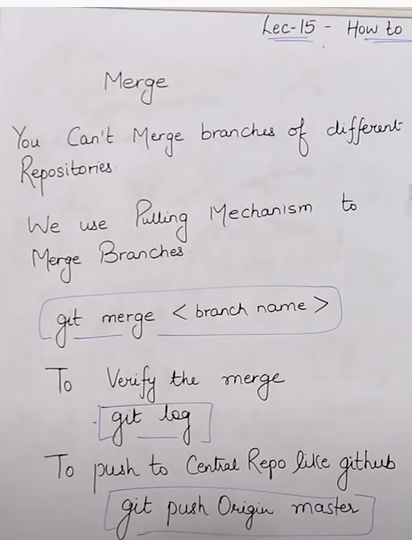 Lec-15 - How to
Merge
You Can't Merge branches of different
Repositories.
We use Pulling Mechanism to
Merge Branches
git merge < branch name >
To Verify the merge
git log
To push to Central Repo like github
git push Origin master